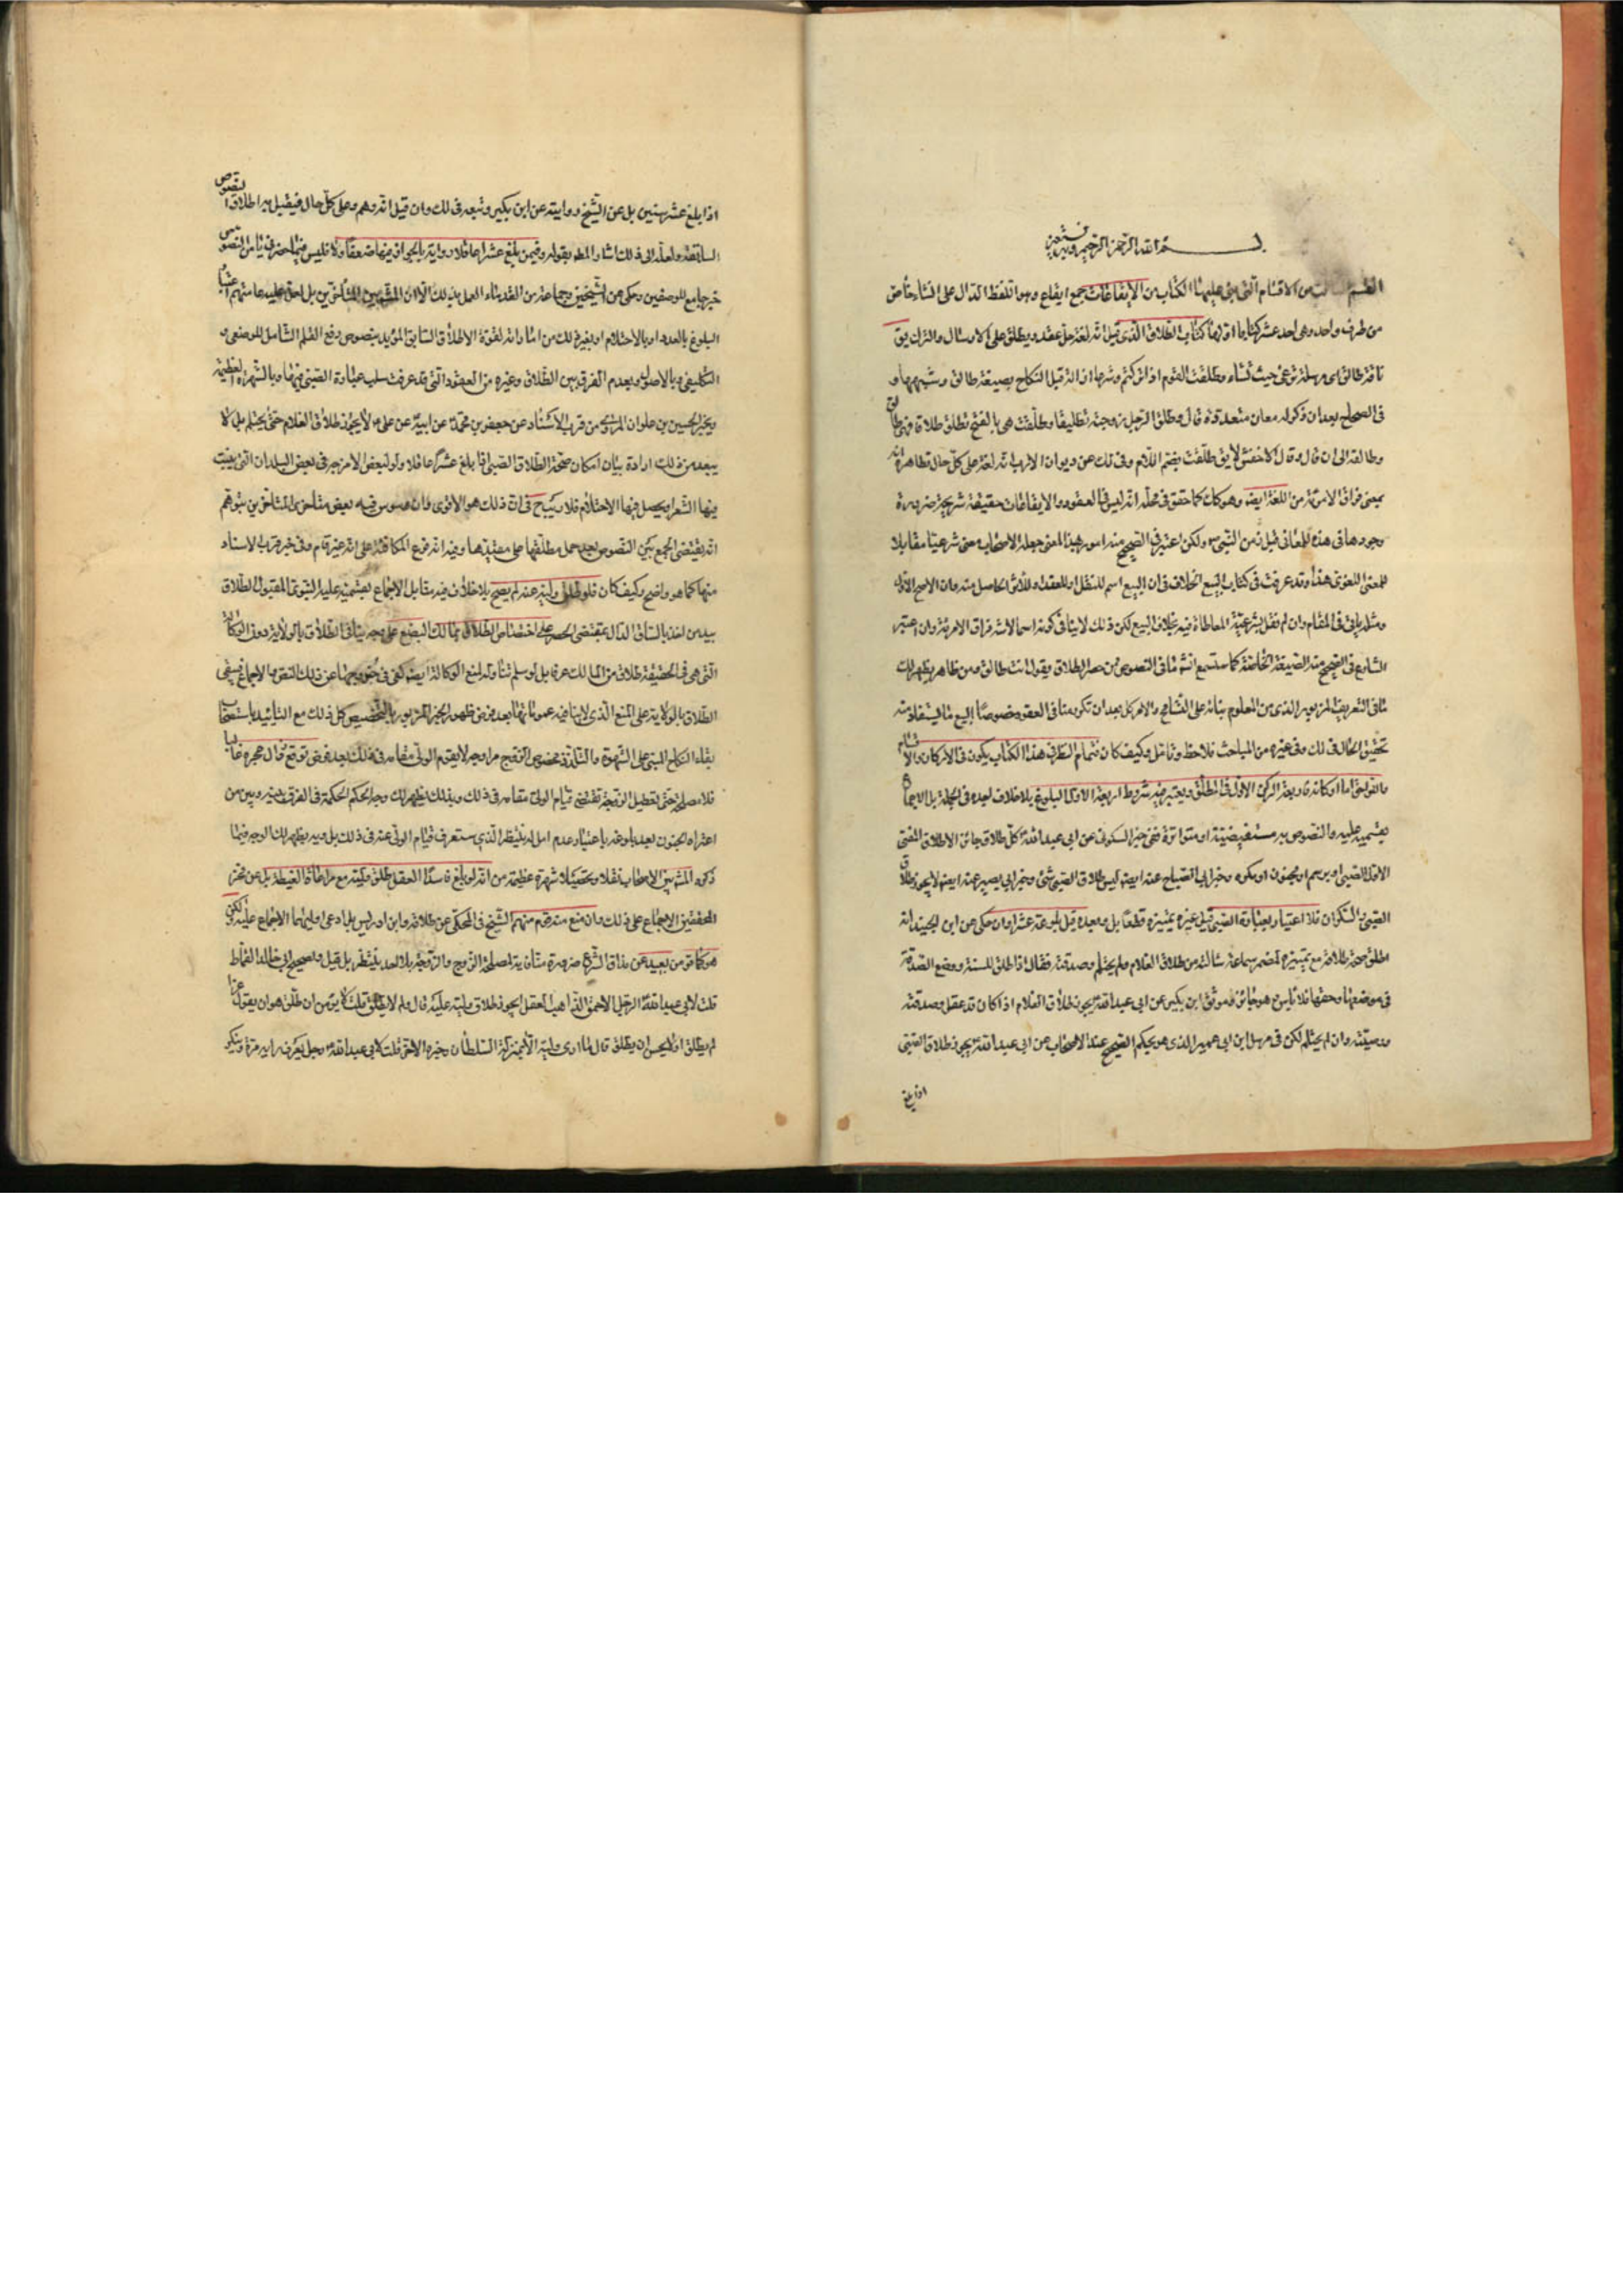 بسم الله الرحمن الرحيم وبه نستعين
القسم الثالث من الاقسام التي بني عليها الكتاب من الايقاعات جمع ايقاع وهو اللفظ الدال على انشاء خاص
من طرف واحد وهي احد عشر كتابا اولها كتاب الطلاق الذي قيل انه لغة حل عقد ويطلق على الارسال والترك يق
ناقة طالق اى مرسلة ترعى حيث تشاء وطلقت القوم اذا تركتهم وشرعا ازالة قيد النكاح بصيغة طالق وشبهها و
في الصحاح بعد ان ذكر له معان متعددة قال وطلق الرجل زوجته تطليقا وطلقت هي بالفتح تطلق طلاقا فهي طالق
وطالقة الى ان قال وقال الاخفش لا يق طلقت بضم اللام وفى ذلك عن ديوان الادب انه لغة على كل حال تظاهره انه
بمعنى فراق الامرئة من اللغة ايضا وهو كك كما حقق في محله انه ليس في العقود والايقاعات حقيقة شرعية ضرورة
وجودها في هذه المعانى قبل زمن النبي ص ولكن اعتبر في الصحيح منه امور بهذا المعنى جعله الاصحاب معنى شرعيا مقابلا
للمعنى اللغوى هذا وقد عرفت في كتاب البيع الخلاف في ان البيع اسم للنقل او للعقد او للاثر الحاصل منه وان الاصح الاول
ومثله ياتى في المقام وان لم نقل بشرعية المعاطاة فيه بخلاف البيع لكن ذلك لا ينافي كونه اسما لاثر فراق الامرئة وان اعتبر
الشارع في الصحيح منه الصيغة الخاصة كما ستسمع انشاء ما في النصوص من حصر الطلاق بقول انت طالق ومن ظاهر يظهر لك
ما في التعريف المزبور الذى من المعلوم بنائه على التسامح والامر سهل بعد ان تكرر منا في العقود خصوصا البيع ما يستفاد منه
تحقيق الحال في ذلك وفى غيره من المباحث فلاحظ وتامل وكيف كان فتمام النظر في هذا الكتاب يكون في الاركان والاقسام
واللواحق اما اركانه فاربعة الركن الاول في المطلق ويعتبر فيه شروط اربعة الاول البلوغ بلا خلاف اجده في الجملة بل الاجماع
بقسميه عليه والنصوص به مستفيضة او متواترة ففي خبر السكونى عن ابى عبد الله ع كل طلاق جائز الا طلاق المعتوه
او الصبي او مبرسم او مجنون او مكره وخبر ابى الصباح عنه ايضا ليس طلاق الصبي بشئ وخبر ابى بصير عنه ايضا لا يجوز طلاق
الصبي والسكران فلا اعتبار بعبارة الصبي قبل غيره تمييزه قطعا بل وبعده قبل بلوغه عشرا وان حكى عن ابن الجنيد انه
اطلق صحة طلاقه مع تمييزه لمضمر سماعة سالته عن طلاق الغلام ولم يحتلم وصدقته فقال اذا طلق للسنة ووضع الصدقة
في موضعها وحقها فلا باس وهو جائز وموثق ابن بكير عن ابى عبد الله ع يجوز طلاق الغلام اذا كان قد عقل وصدقته
ووصيته وان لم يحتلم لكن في مرسل ابن ابى عمير الذى هو بحكم الصحيح عند الاصحاب عن ابى عبد الله ع يجوز طلاق الصبي
اذا بلغ
اذا بلغ عشر سنين بل عن الشيخ روايته عن ابن بكير وتبعه في ذلك وان قيل انه وهم وعلى كل حال فيقيد به اطلاق النصوص
السابقة ولعله الى ذلك اشار المص بقوله وفيمن بلغ عشرا عاقلا رواية بالجواز فيها ضعف والا فليس فيما حضرنى من النصوص
خبر جامع للوصفين وحكى عن الشيخين وجماعة من القدماء العمل بذلك الا ان المشهور بين المتاخرين بل لعل عليه عامتهم اعتبار
البلوغ بالعدد او بالاحتلام او بغير ذلك من اماراته لقوة الاطلاق السابق المؤيد بنصوص رفع القلم الشامل للوضعى و
التكليفي وبالاصول وبعدم الفرق بين الطلاق وغيره من العقود التى قد عرفت سلب عبارة الصبي فيها وبالشهرة العظيمة
وبخبر الحسين بن علوان المروى من قرب الاسناد عن جعفر بن محمد عن ابيه عن على ع لا يجوز طلاق الغلام حتى يحتلم بل لا
يبعد من ذلك ارادة بيان امكان صحة الطلاق الصبي اذا بلغ عشرا عاقلا ولو لبعض الامزجة في بعض البلدان التى ينبت
فيها الشعر او يحصل فيها الاحتلام فلا ريب ح في ان ذلك هو الاقوى وان وسوس فيه بعض متاخرى المتاخرين بتوهم
انه يقتضى الجمع بين النصوص بعد حمل مطلقها على مقيدها وفيه انه فرع المكافئة على انه غير تام وفى خبر قرب الاسناد
منها كما هو واضح وكيف كان فلو طلق وليه عنه لم يصح بلا خلاف فيه مقابل الاجماع بقسميه عليه النبوى المقبول الطلاق
بيد من اخذ بالساق الدال بمقتضى الحصر على اختصاص الطلاق بمالك البضع على وجه ينافى الطلاق بالولاية دون الوكالة
التى هى في الحقيقة طلاق من المالك عرفا بل لو سلم تناوله لمنع الوكالة ايضا كفى في خروجها عن ذلك النص والاجماع فيبقى
الطلاق بالولاية على المنع الذى لا ينافيه عموماتها بعد فرض ظهور الخبر المزبور بالتخصيص كل ذلك مع التاييد باستصحاب
بقاء النكاح المبنى على الشهوة والتلذذ بخصوص الزوج مراوجه لا يقوم الولى مقامه في ذلك بعد فرض توقع زوال حجره غالبا
فلا مصلحة حتى لتعطيل الزوجة تقتضى قيام الولى مقامه في ذلك وبذلك يظهر لك وجه الحكم الحكمة في الفرق بينه وبين من
اعتراه الجنون بعد بلوغه باعتبار عدم امل له ينتظر الذى ستعرف قيام الولى عنه في ذلك بل وبه يظهر لك الوجه فيما
ذكره المشهور بين الاصحاب نقلا وتحصيلا شهرة عظيمة من انه لو بلغ فاسد العقل طلق وليه مع مراعاة الغبطة بل عن فخر
المحققين الاجماع على ذلك وان منع منه قوم منهم الشيخ في المحكى عن خلافه وابن ادريس بل ادعى اولهما الاجماع عليه لكن
هو كما ترى بعيد عن مذاق الشرع ضرورة منافاته لمصلحة الزوج والزوجة بلا احد ينتظر بل قيل ولصحيح ابى خالد القماط
قلت لابى عبد الله ع الرجل الاحمق الذاهب العقل ايجوز طلاق وليه عليه قال ولم لا يطلق قلت لا يؤمن ان طلق هو ان يقول غدا
لم يطلق او لا يحسن ان يطلق قال ما ارى وليه الا بمنزلة السلطان وخبره الاخر قلت لابى عبد الله ع رجل يعرف رايه مرة وينكره